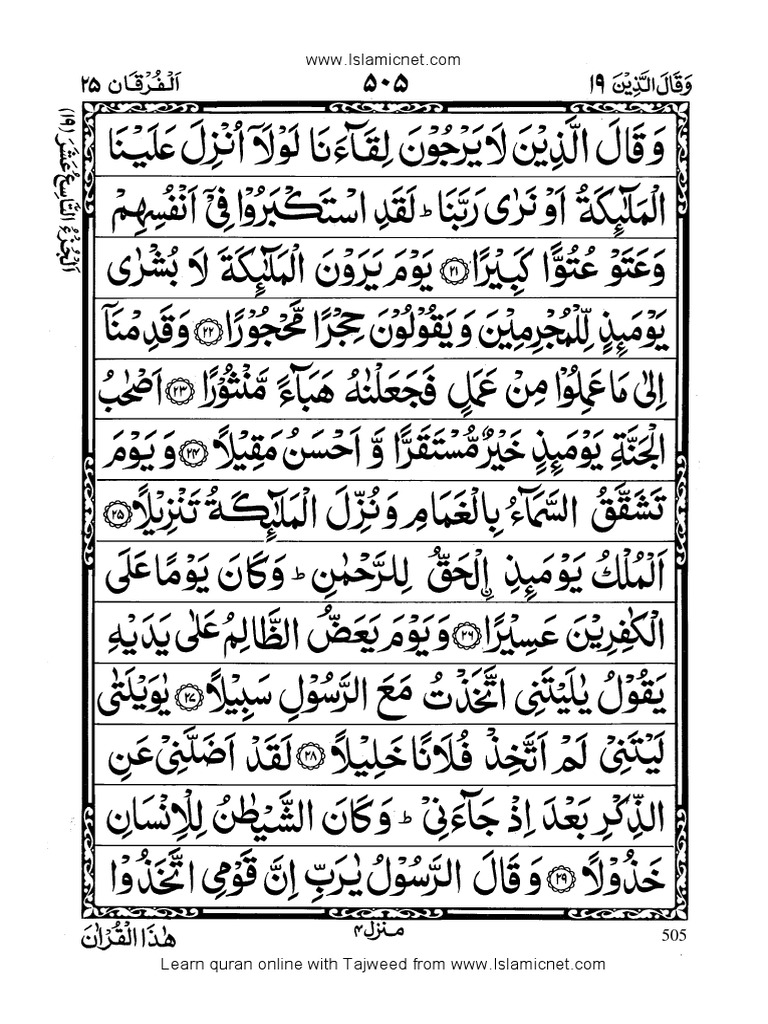 www.Islamicnet.com
وَقَالَ الَّذِيْنَ ١٩ ۵۰۵ اَلْفُرْقَان ٢٥
اَلْجُزْءُ التَّاسِعُ عَشَرَ (١٩)
وَ قَالَ الَّذِيْنَ لَا يَرْجُوْنَ لِقَآءَنَا لَوْلَاۤ اُنْزِلَ عَلَيْنَا
الْمَلٰٓئِكَةُ اَوْ نَرٰى رَبَّنَا ؕ لَقَدِ اسْتَكْبَرُوْا فِيْۤ اَنْفُسِهِمْ
وَعَتَوْ عُتُوًّا كَبِيْرًا ﴿٢١﴾ يَوْمَ يَرَوْنَ الْمَلٰٓئِكَةَ لَا بُشْرٰى
يَوْمَئِذٍ لِّلْمُجْرِمِيْنَ وَيَقُوْلُوْنَ حِجْرًا مَّحْجُوْرًا ﴿٢٢﴾ وَقَدِمْنَاۤ
اِلٰى مَا عَمِلُوْا مِنْ عَمَلٍ فَجَعَلْنٰهُ هَبَآءً مَّنْثُوْرًا ﴿٢٣﴾ اَصْحٰبُ
الْجَنَّةِ يَوْمَئِذٍ خَيْرٌ مُّسْتَقَرًّا وَّ اَحْسَنُ مَقِيْلًا ﴿٢٤﴾ وَ يَوْمَ
تَشَقَّقُ السَّمَآءُ بِالْغَمَامِ وَنُزِّلَ الْمَلٰٓئِكَةُ تَنْزِيْلًا ﴿٢٥﴾
اَلْمُلْكُ يَوْمَئِذِ ِۨالْحَقُّ لِلرَّحْمٰنِ ؕ وَكَانَ يَوْمًا عَلَى
الْكٰفِرِيْنَ عَسِيْرًا ﴿٢٦﴾ وَيَوْمَ يَعَضُّ الظَّالِمُ عَلٰى يَدَيْهِ
يَقُوْلُ يٰلَيْتَنِى اتَّخَذْتُ مَعَ الرَّسُوْلِ سَبِيْلًا ﴿٢٧﴾ يٰوَيْلَتٰى
لَيْتَنِيْ لَمْ اَتَّخِذْ فُلَانًا خَلِيْلًا ﴿٢٨﴾ لَقَدْ اَضَلَّنِيْ عَنِ
الذِّكْرِ بَعْدَ اِذْ جَآءَنِيْ ؕ وَكَانَ الشَّيْطٰنُ لِلْاِنْسَانِ
خَذُوْلًا ﴿٢٩﴾ وَقَالَ الرَّسُوْلُ يٰرَبِّ اِنَّ قَوْمِى اتَّخَذُوْا
505 منزل ۴ هٰذَا الْقُرْاٰنَ
Learn quran online with Tajweed from www.Islamicnet.com